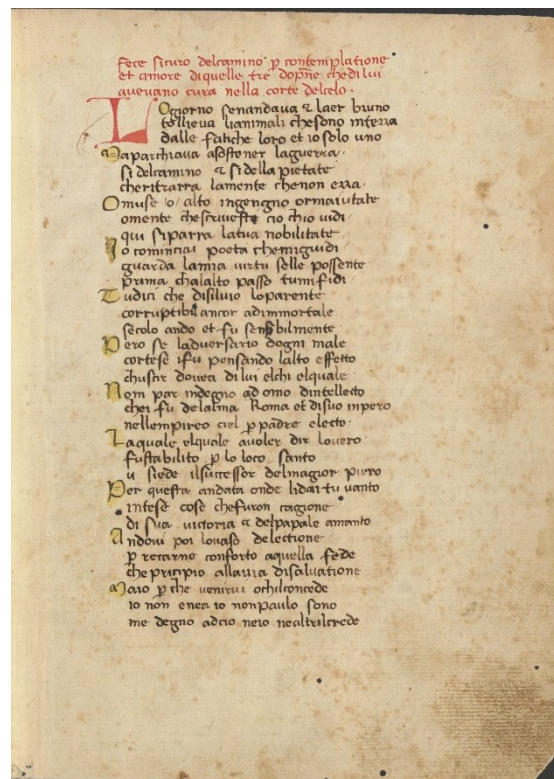 fece sicuro delcamino p contemplatione
et amore diquelle tre dopne chedi lui
avevano cura nella corte delcelo.
LOgiorno senandava et laer bruno
tollieva lianimali chesono interra
dalle fatiche loro et io solo uno
Maparchiava asostener laguerra.
si delcamino et si della pietate
cheritrarra lamente chenon erra.
O muse o alto ingengno ormaiutate
omente chescrivesti cio chio vidi.
qui siparra latua nobilitate
Io cominciai poeta chemiguidi
guarda lamia virtu selle possente
prima chalalto passo tumifidi.
Tu dici che disilvio loparente
corruptibil ancor adimmortale
secolo ando et fu sensibilmente.
Pero se ladversario dogni male
cortese ifu pensando lalto effetto
chuscir dovea di lui elchi elquale.
Nom par indegno ad omo dintellecto
chei fu delalma Roma et disuo inpero
nellempireo ciel p padre electo.
Laquale elquale avoler dir lovero
fustabilito p lo loco santo
u siede ilsuccessor delmagior piero
Per questa andata onde lidai tu vanto
intese cose chefuron cagione
di sua victoria et delpapale amanto
Andovi poi lovaso delectione
p recarne conforto aquella fede
che pricipio allavia disalvatione
Maio p che venirvi ochilconcede
io non enea io nonpaulo sono
me degno adcio neio nealtrilcrede